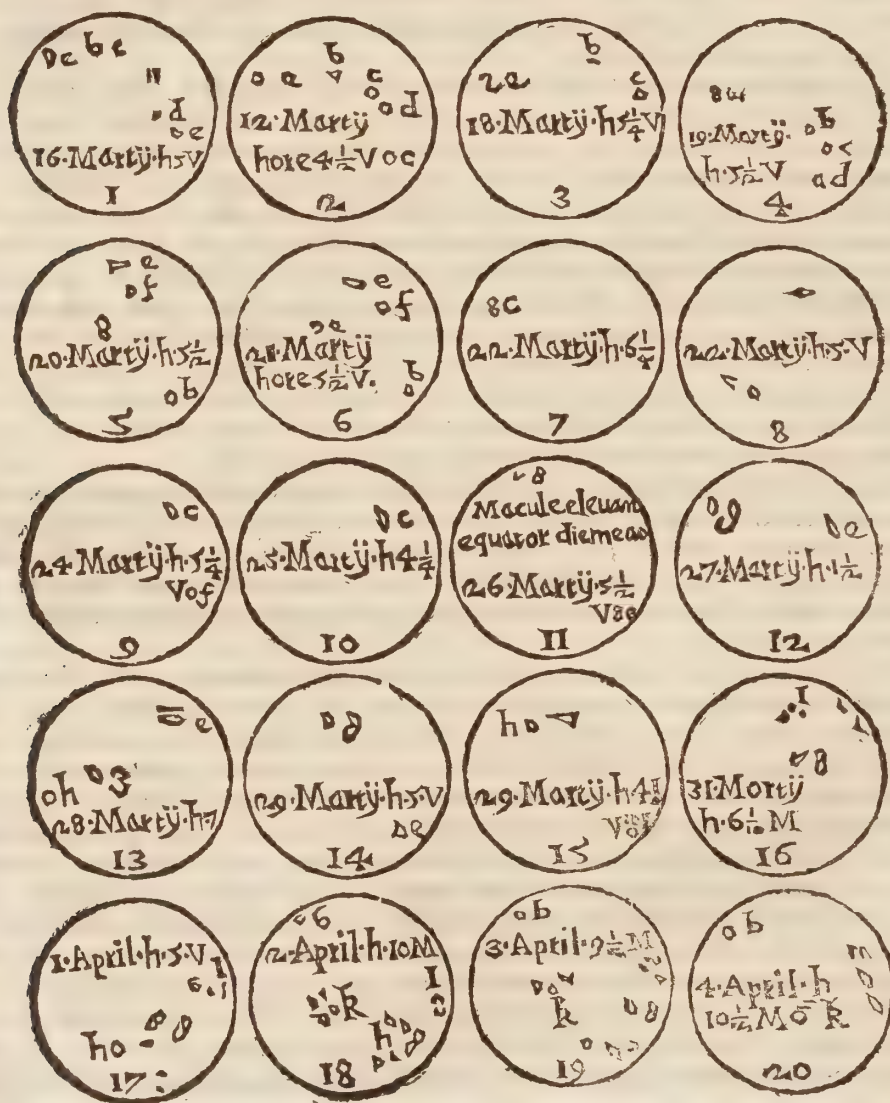 De b e
d
e
16·Martÿ·h·5·V
1
b
o e c
o d
12·Martÿ
hore 4 1/2 V o c
2
b
2e c
18·Martÿ·h 5 1/4 V
3
b
19·Martÿ·
h·5 1/2 V
d
4
e
f
8
20·Martÿ·h·5 1/2
b
5
e
f
21·Martÿ
hore 5 1/2 V.
b
6
8c
22·Martÿ·h·6 1/4
7
22·Martÿ·h·5·V
8
c
24·Martÿ·h·5 1/4
V o f
9
c
25·Martÿ·h 4 1/4
10
8
Macule eleuant
equator diemeao
26·Martÿ·5 1/2
V 8e
11
g
e
27·Martÿ·h·1 1/2
12
e
oh 3
28·Martÿ·h·7
13
g
29·Martÿ·h·5·V
e
14
h
29·Martÿ·h 4
15
I
8
31·Mortÿ
M
16
1·April·h·5·V
I
h 8
17
6
2·April·h·10M
k I
h
18
b
3·April·9 1/2 M
k 8
19
b
m
4·April·h
10 1/2 M o k
20